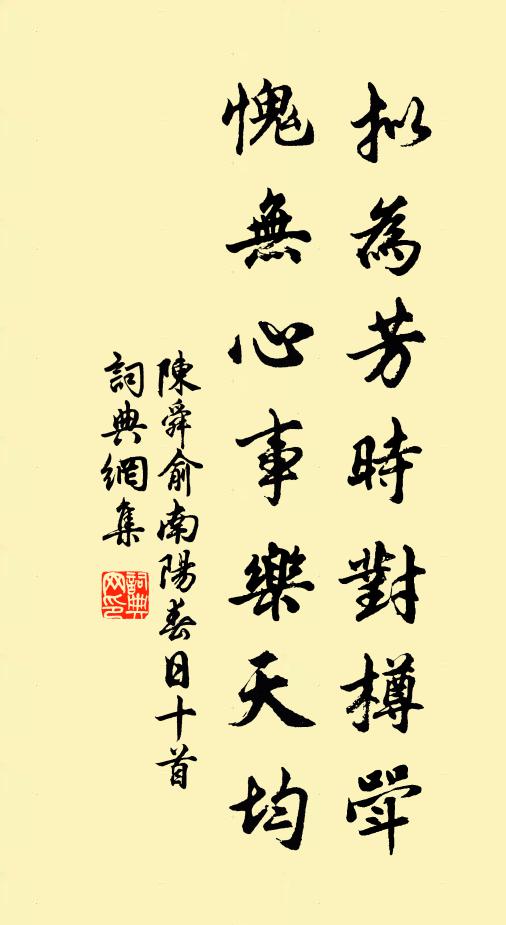 拟為芳時對樽斝
愧無心事樂天均
陳舜俞南陽春日十首
詞典網集
詞典网印